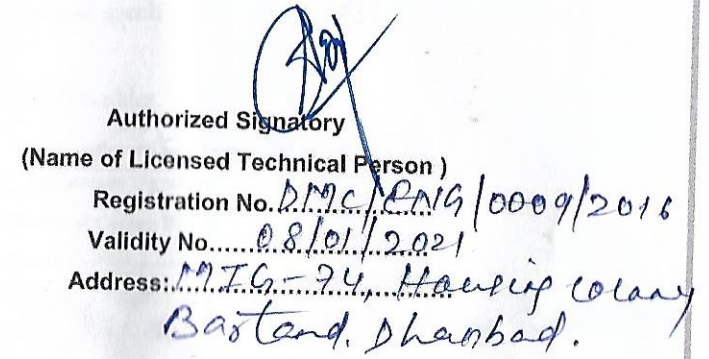 Authorized Signatory
(Name of Licensed Technical Person )
Registration No. DMC/ENG/0009/2016
Validity No...... 08/01/2021
Address: MIG-74, Housing colony
Bartand. Dhanbad.